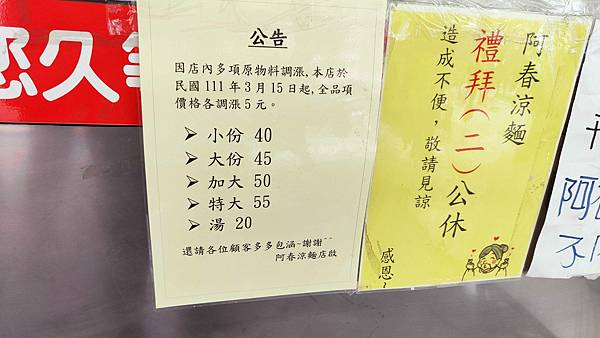 您久等
公告
因店內多項原物料調漲,本店於
民國 111 年 3 月 15 日起,全品項
價格各調漲 5 元。
➤ 小份 40
➤ 大份 45
➤ 加大 50
➤ 特大 55
➤ 湯 20
還請各位顧客多多包涵~謝謝^^
阿春涼麵店啟
阿春涼麵
禮拜(二)公休
造成不便,敬請見諒
感恩~
阿
不